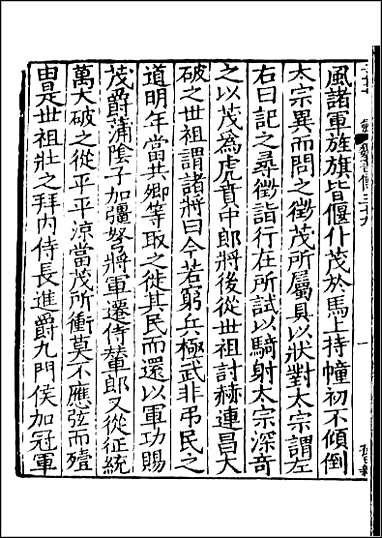 風諸軍旌旗皆偃仆茂於馬上持幢初不傾倒
太宗異而問之徵茂所屬具以狀對太宗謂左
右曰記之尋徵詣行在所試以騎射太宗深奇
之以茂爲虎賁中郎將後從世祖討赫連昌大
破之世祖謂諸將曰今若窮兵極武非弔民之
道明年當共卿等取之徙其民而還以軍功賜
茂爵蒲陰子加彊弩將軍遷侍輦郎又從征統
萬大破之從平平涼當茂所衝莫不應弦而殪
由是世祖壯之拜內侍長進爵九門侯加冠軍